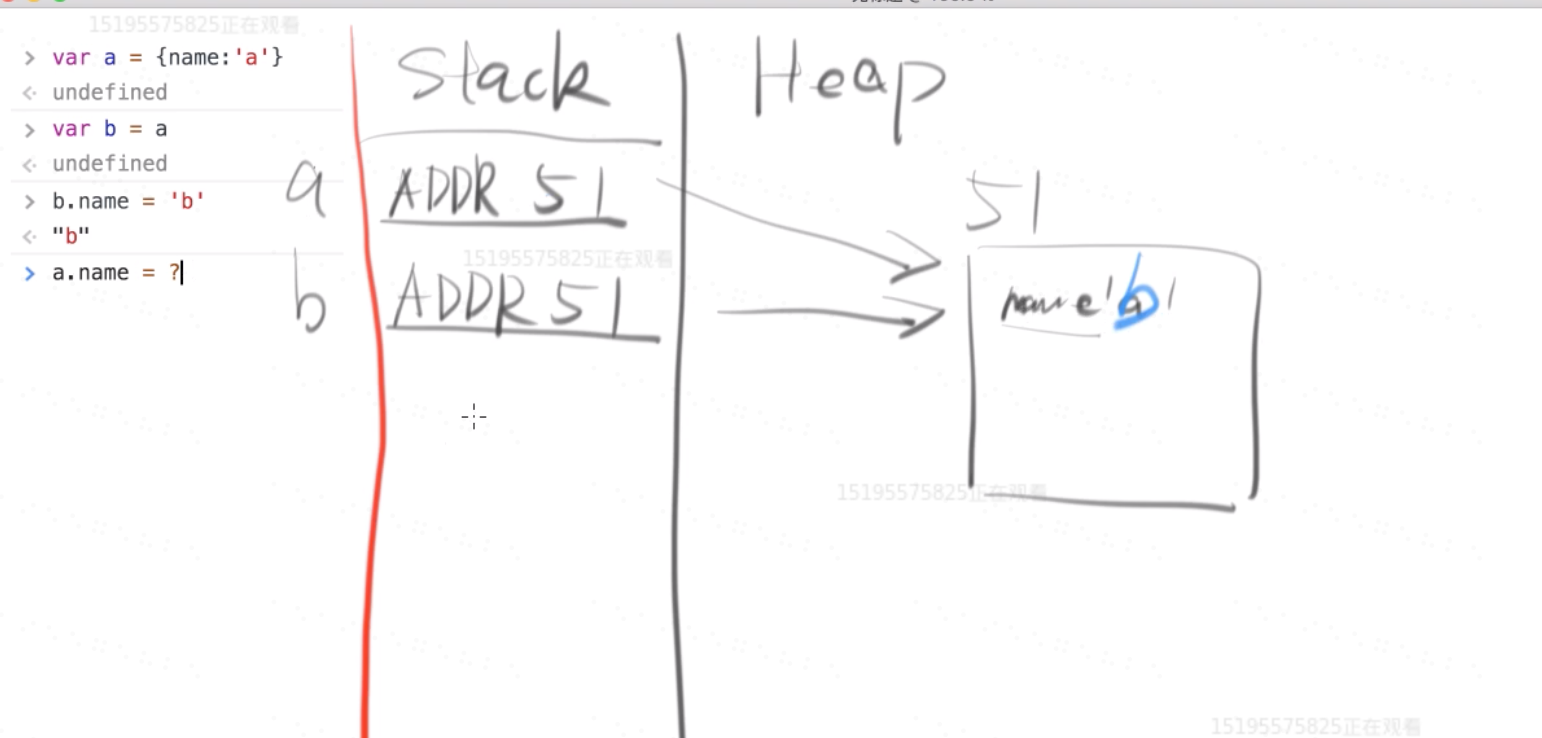 15195575825正在观看
> var a = {name:'a'}
<· undefined
> var b = a
<· undefined
> b.name = 'b'
<· "b"
> a.name = ?
Stack
Heap
a
ADDR 51
b
ADDR 51
15195575825正在观看
51
name 'b'
15195575825正在观看
15195575825正在观看